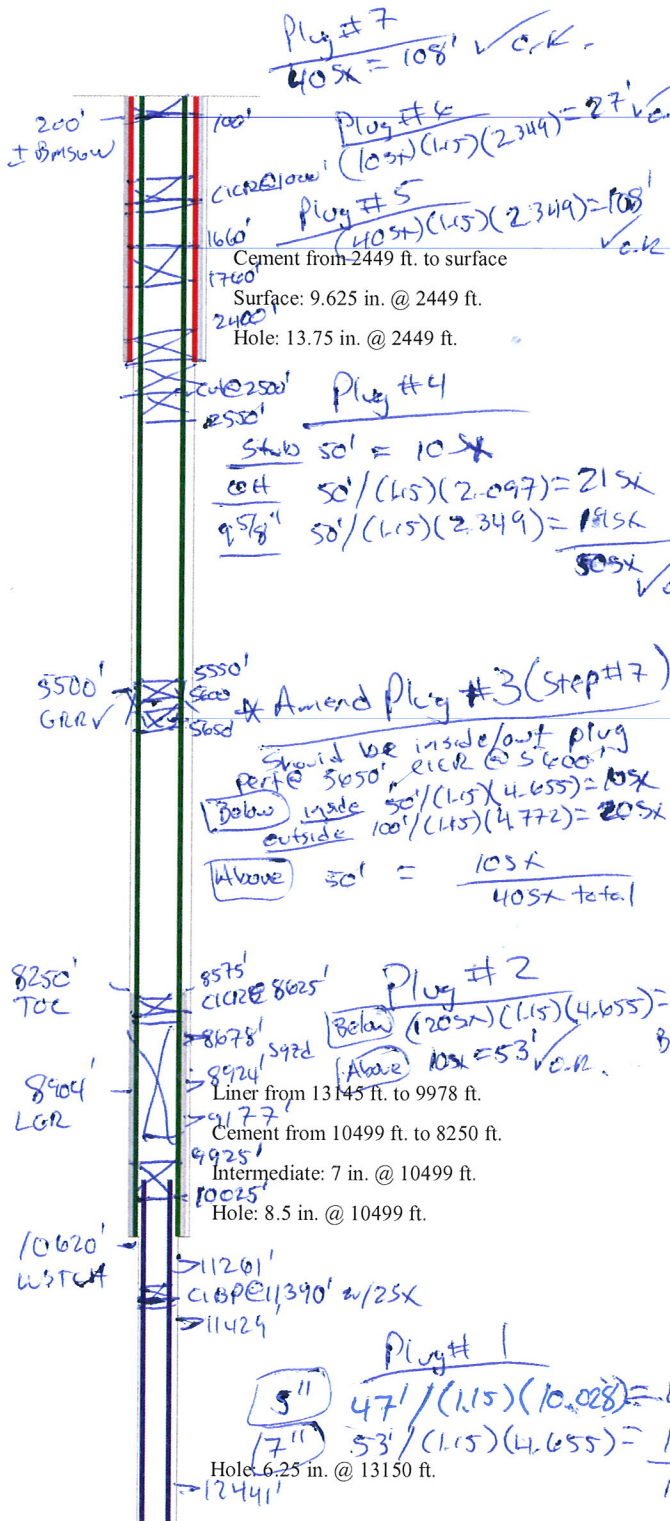 Plug # 7
40sx = 108' ✓ O.K.
200'
± BMSGW
100'
Plug # 6
(10sx)(1.15)(2.349) = 27' ✓ O.
CICR@1000'
Plug # 5
(40sx)(1.15)(2.349) = 108'
✓ O.K
1660'
Cement from 2449 ft. to surface
1760'
Surface: 9.625 in. @ 2449 ft.
2400'
Hole: 13.75 in. @ 2449 ft.
cut@2500'
2550'
Plug #4
Stub 50' = 10sx
OH 50'/(1.15)(2.097) = 21sx
9 5/8" 50'/(1.15)(2.349) = 19sx
50sx
✓ O
5500'
GRRV
5550'
5600'
5650'
* Amend Plug #3 (Step #7)
Should be inside/out plug
perf@ 5650' CICR @ 5600'
Below inside 50'/(1.15)(4.655) = 10sx
outside 100'/(1.15)(4.772) = 20sx
Above 50' = 10sx
40sx total
8250'
TOC
8575'
CICR@8625'
Plug # 2
Below (120sx)(1.15)(4.655) =
Above 10sx = 53' ✓ O.K.
8678'
sqzd
8904'
LGR
8924'
Liner from 13145 ft. to 9978 ft.
9177'
Cement from 10499 ft. to 8250 ft.
9925'
Intermediate: 7 in. @ 10499 ft.
10025'
Hole: 8.5 in. @ 10499 ft.
10620'
WSTCH
11261'
CIBP@11,390' w/2sx
11429'
Plug # 1
5" 47'/(1.15)(10.028) =
7" 53'/(1.15)(4.655) = 1
Hole: 6.25 in. @ 13150 ft.
12441'